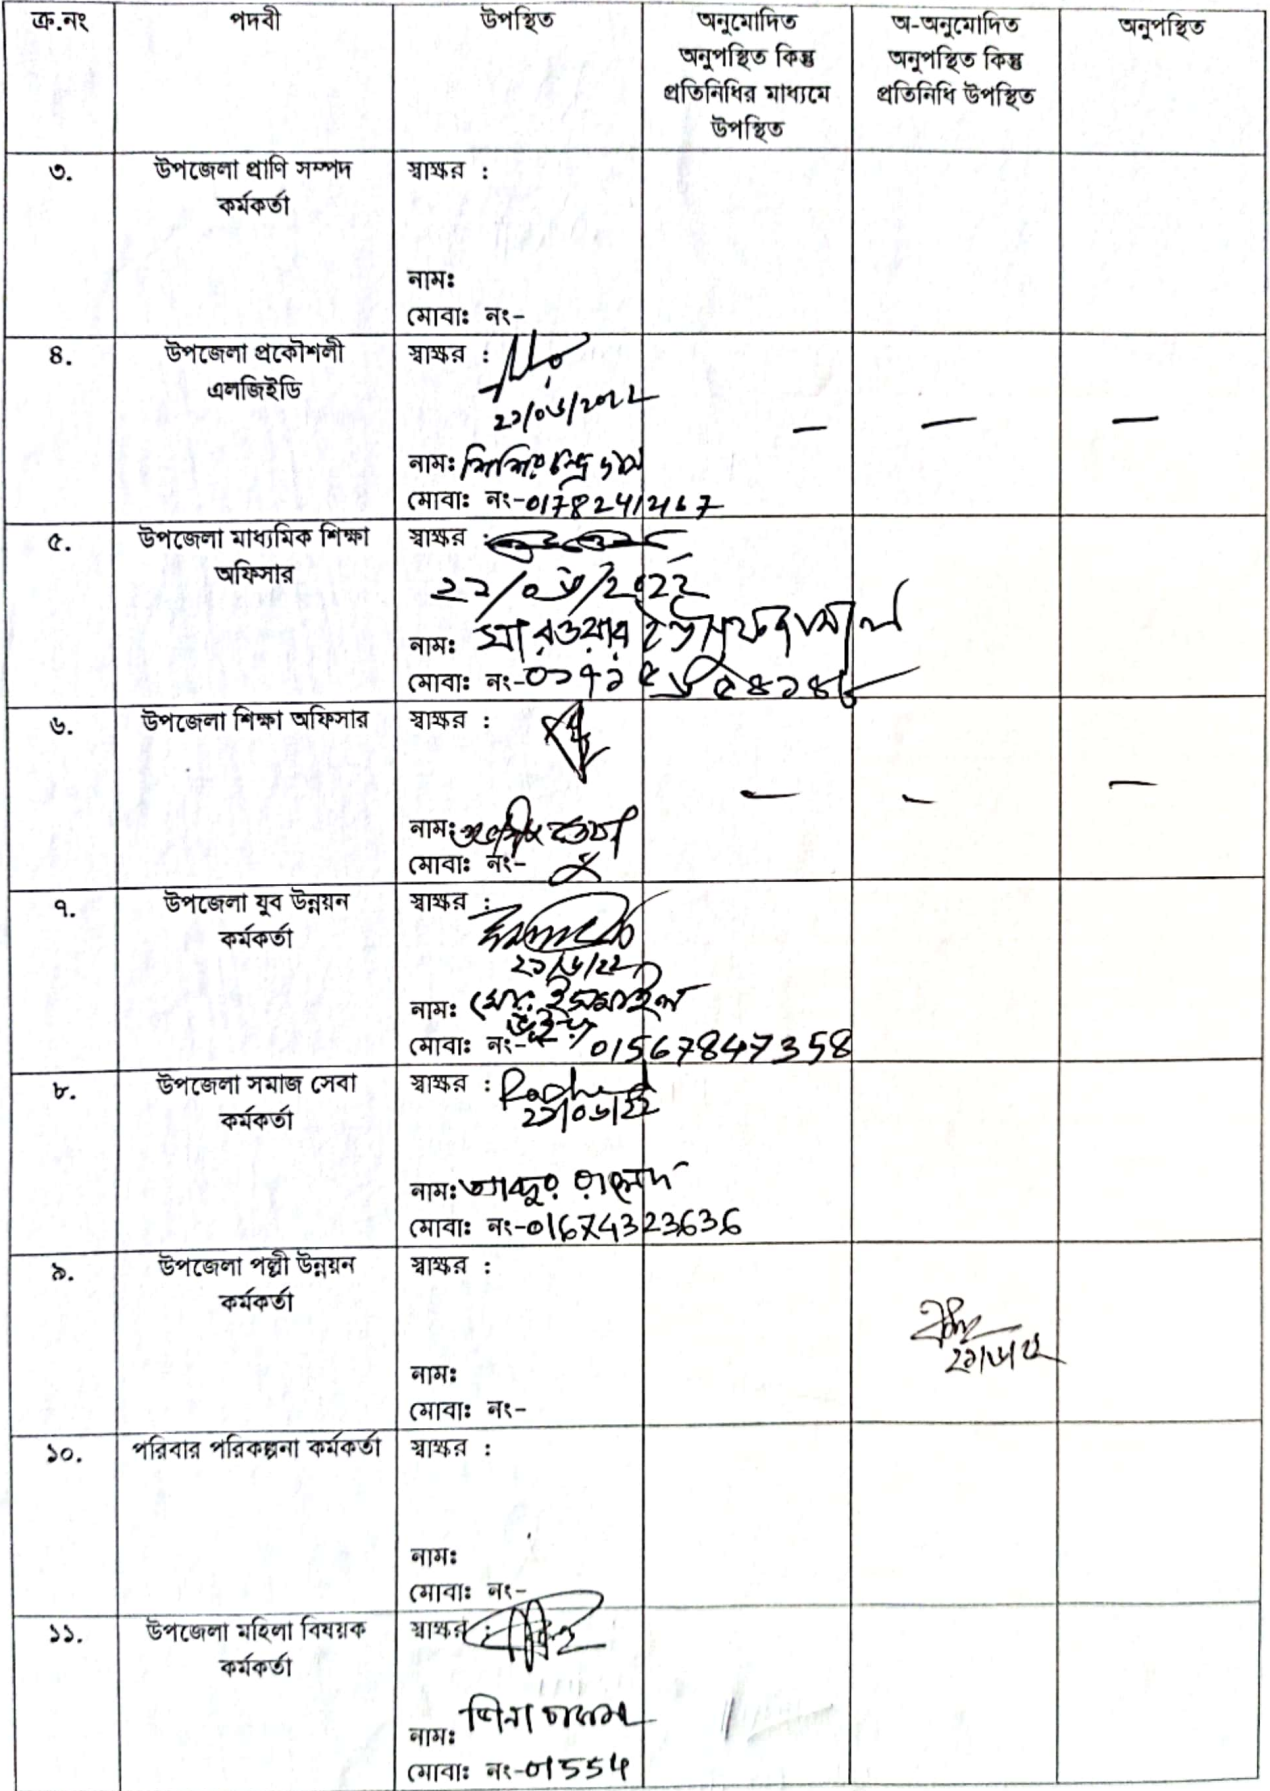 ক্র.নং পদবী উপস্থিত অনুমোদিত অনুপস্থিত কিন্তু প্রতিনিধির মাধ্যমে উপস্থিত অ-অনুমোদিত অনুপস্থিত কিন্তু প্রতিনিধি উপস্থিত অনুপস্থিত
৩. উপজেলা প্রাণি সম্পদ কর্মকর্তা
স্বাক্ষর :
নাম:
মোবা: নং-
৪. উপজেলা প্রকৌশলী এলজিইডি
স্বাক্ষর :
২১/০৬/২০২২
নাম: শিশির চন্দ্র দাস
মোবা: নং-01782412167
— — —
৫. উপজেলা মাধ্যমিক শিক্ষা অফিসার
স্বাক্ষর :
২১/০৬/২০২২
নাম: সারওয়ার ইউসুফ জামাল
মোবা: নং-
৬. উপজেলা শিক্ষা অফিসার
স্বাক্ষর :
নাম:
মোবা: নং-
— — —
৭. উপজেলা যুব উন্নয়ন কর্মকর্তা
স্বাক্ষর :
২১/৬/২২
নাম: মোঃ ইসমাইল ভূইয়া
মোবা: নং- 01567847358
৮. উপজেলা সমাজ সেবা কর্মকর্তা
স্বাক্ষর :
২১/০৬/২২
নাম: আব্দুর রাশেদ
মোবা: নং-01674323636
৯. উপজেলা পল্লী উন্নয়ন কর্মকর্তা
স্বাক্ষর :
২১/৬/২২
নাম:
মোবা: নং-
১০. পরিবার পরিকল্পনা কর্মকর্তা
স্বাক্ষর :
নাম:
মোবা: নং-
১১. উপজেলা মহিলা বিষয়ক কর্মকর্তা
স্বাক্ষর :
নাম:
মোবা: নং-01554